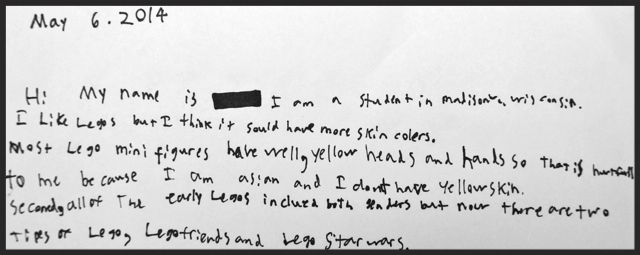 May 6. 2014
Hi My name is I am a student in madison, wisconsin.
I Like Legos but I think it sould have more skin colers.
Most Lego mini figures have welly yellow heads and hands so that is hurtfull
to me because I am asian and I dont have yellow skin.
Secondly all of The early Legos inclued both genders but now there are two
Tipes of Legos, Legofriends and Lego Starwars.